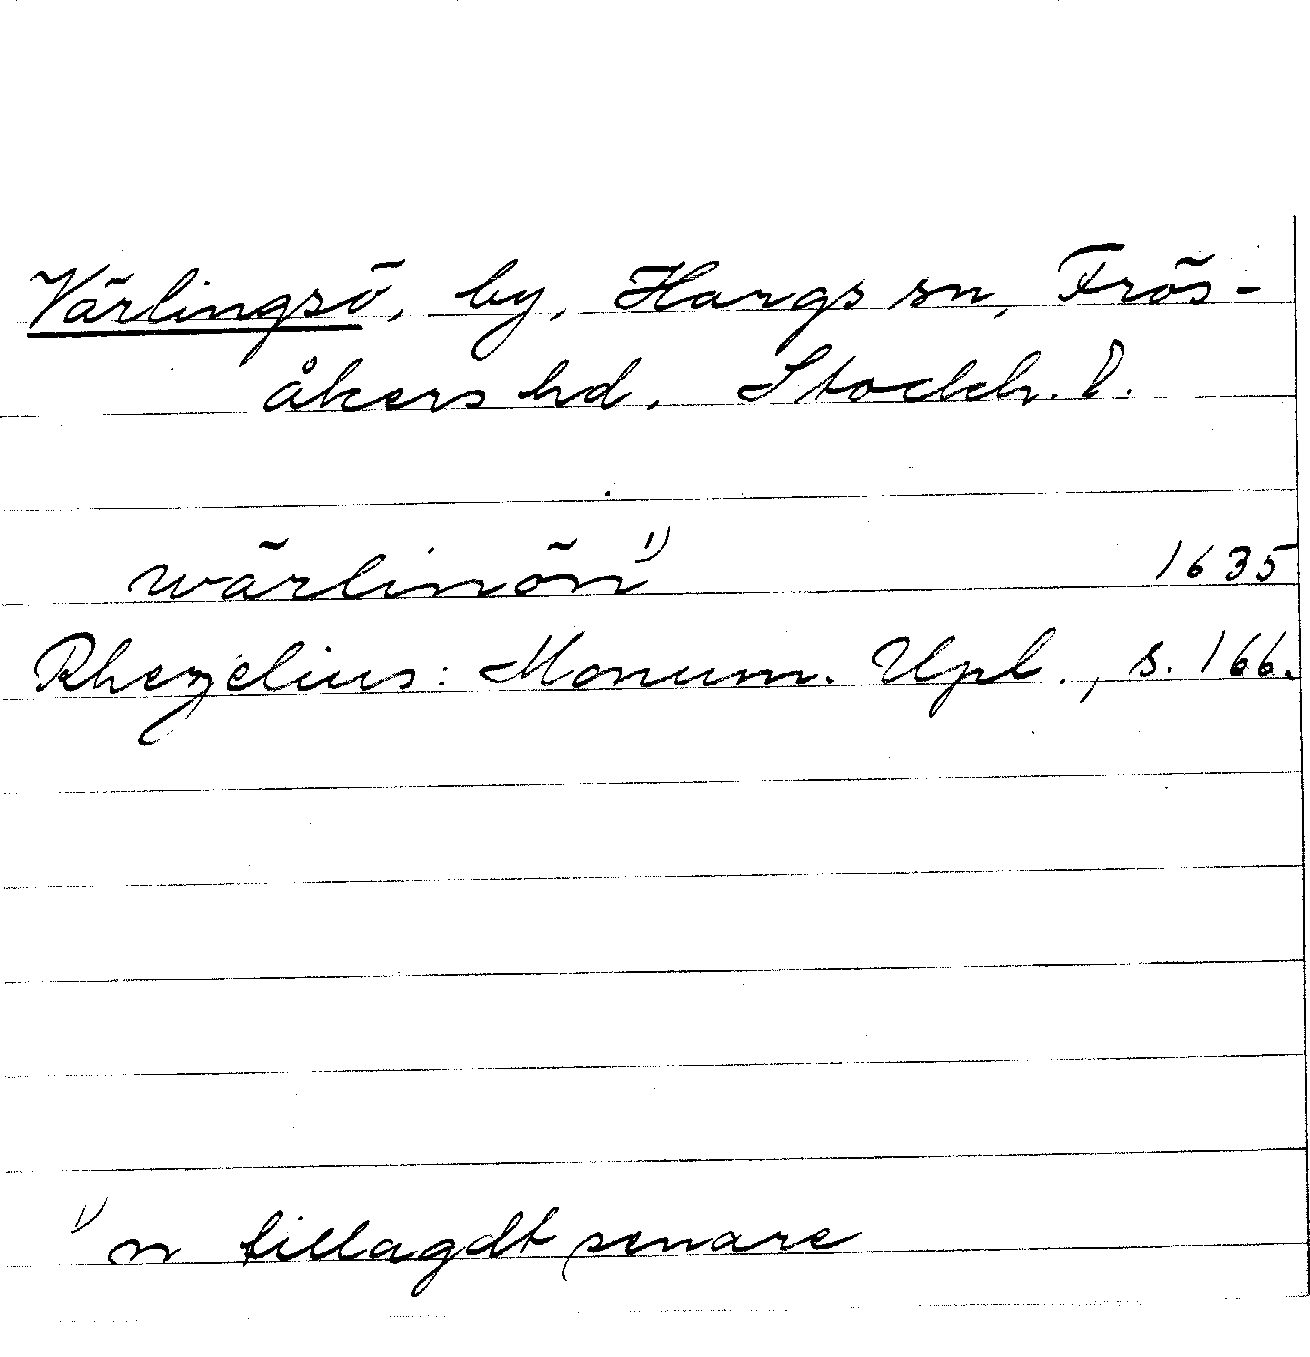 Värlingsö, by, Hargs sn, Frös-
åkers hd. Stockh. l.
wärlinön 1) 1635
Rhezelius: Monum. Upl., s. 166.
1) n tillagdt senare